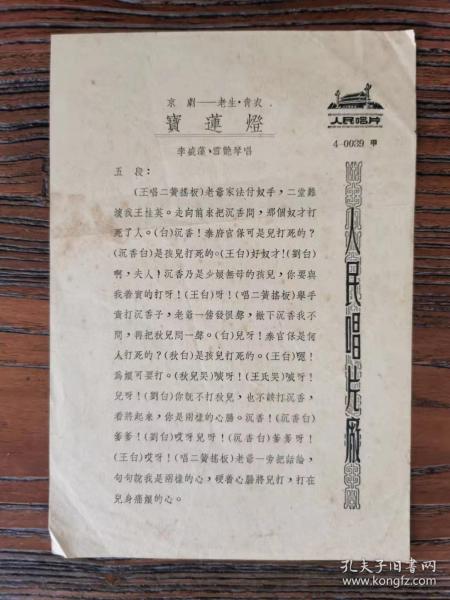 京劇——老生·青衣
寶蓮燈
李盛藻、雪艷琴唱
人民唱片
4-0039 甲
五段：
（王唱二簧搖板）老爺家法付奴手，二堂難
壞我王桂英。走向前來把沉香問，那個奴才打
死了人。（白）沉香！秦府官保可是兒打死的？
（沉香白）是孩兒打死的。（王白）好奴才！（劉白）
啊，夫人！沉香乃是少娘無母的孩兒，你要與
我着實的打呀！（王白）呀！（唱二簧搖板）舉手
責打沉香子，老爺一傍發恨聲，撇下沉香我不
問，再把秋兒問一聲。（白）兒呀！秦官保是何
人打死的？（秋白）是孩兒打死的。（王白）喔！
爲娘可要打。（秋兒哭）喊呀！（王氏哭）喊呀！
兒呀！（劉白）你旣不打秋兒，也不該打沉香，
看將起來，你是兩樣的心腸。沉香！（沉香白）
爹爹！（劉白）哎呀兒呀！（沉香白）爹爹呀！
（王白）哎呀！（唱二簧搖板）老爺一旁把話論，
句句說我是兩樣的心，硬着心腸將兒打，打在
兒身痛娘的心。
人民唱片廠
孔夫子旧书网
kongfz.com